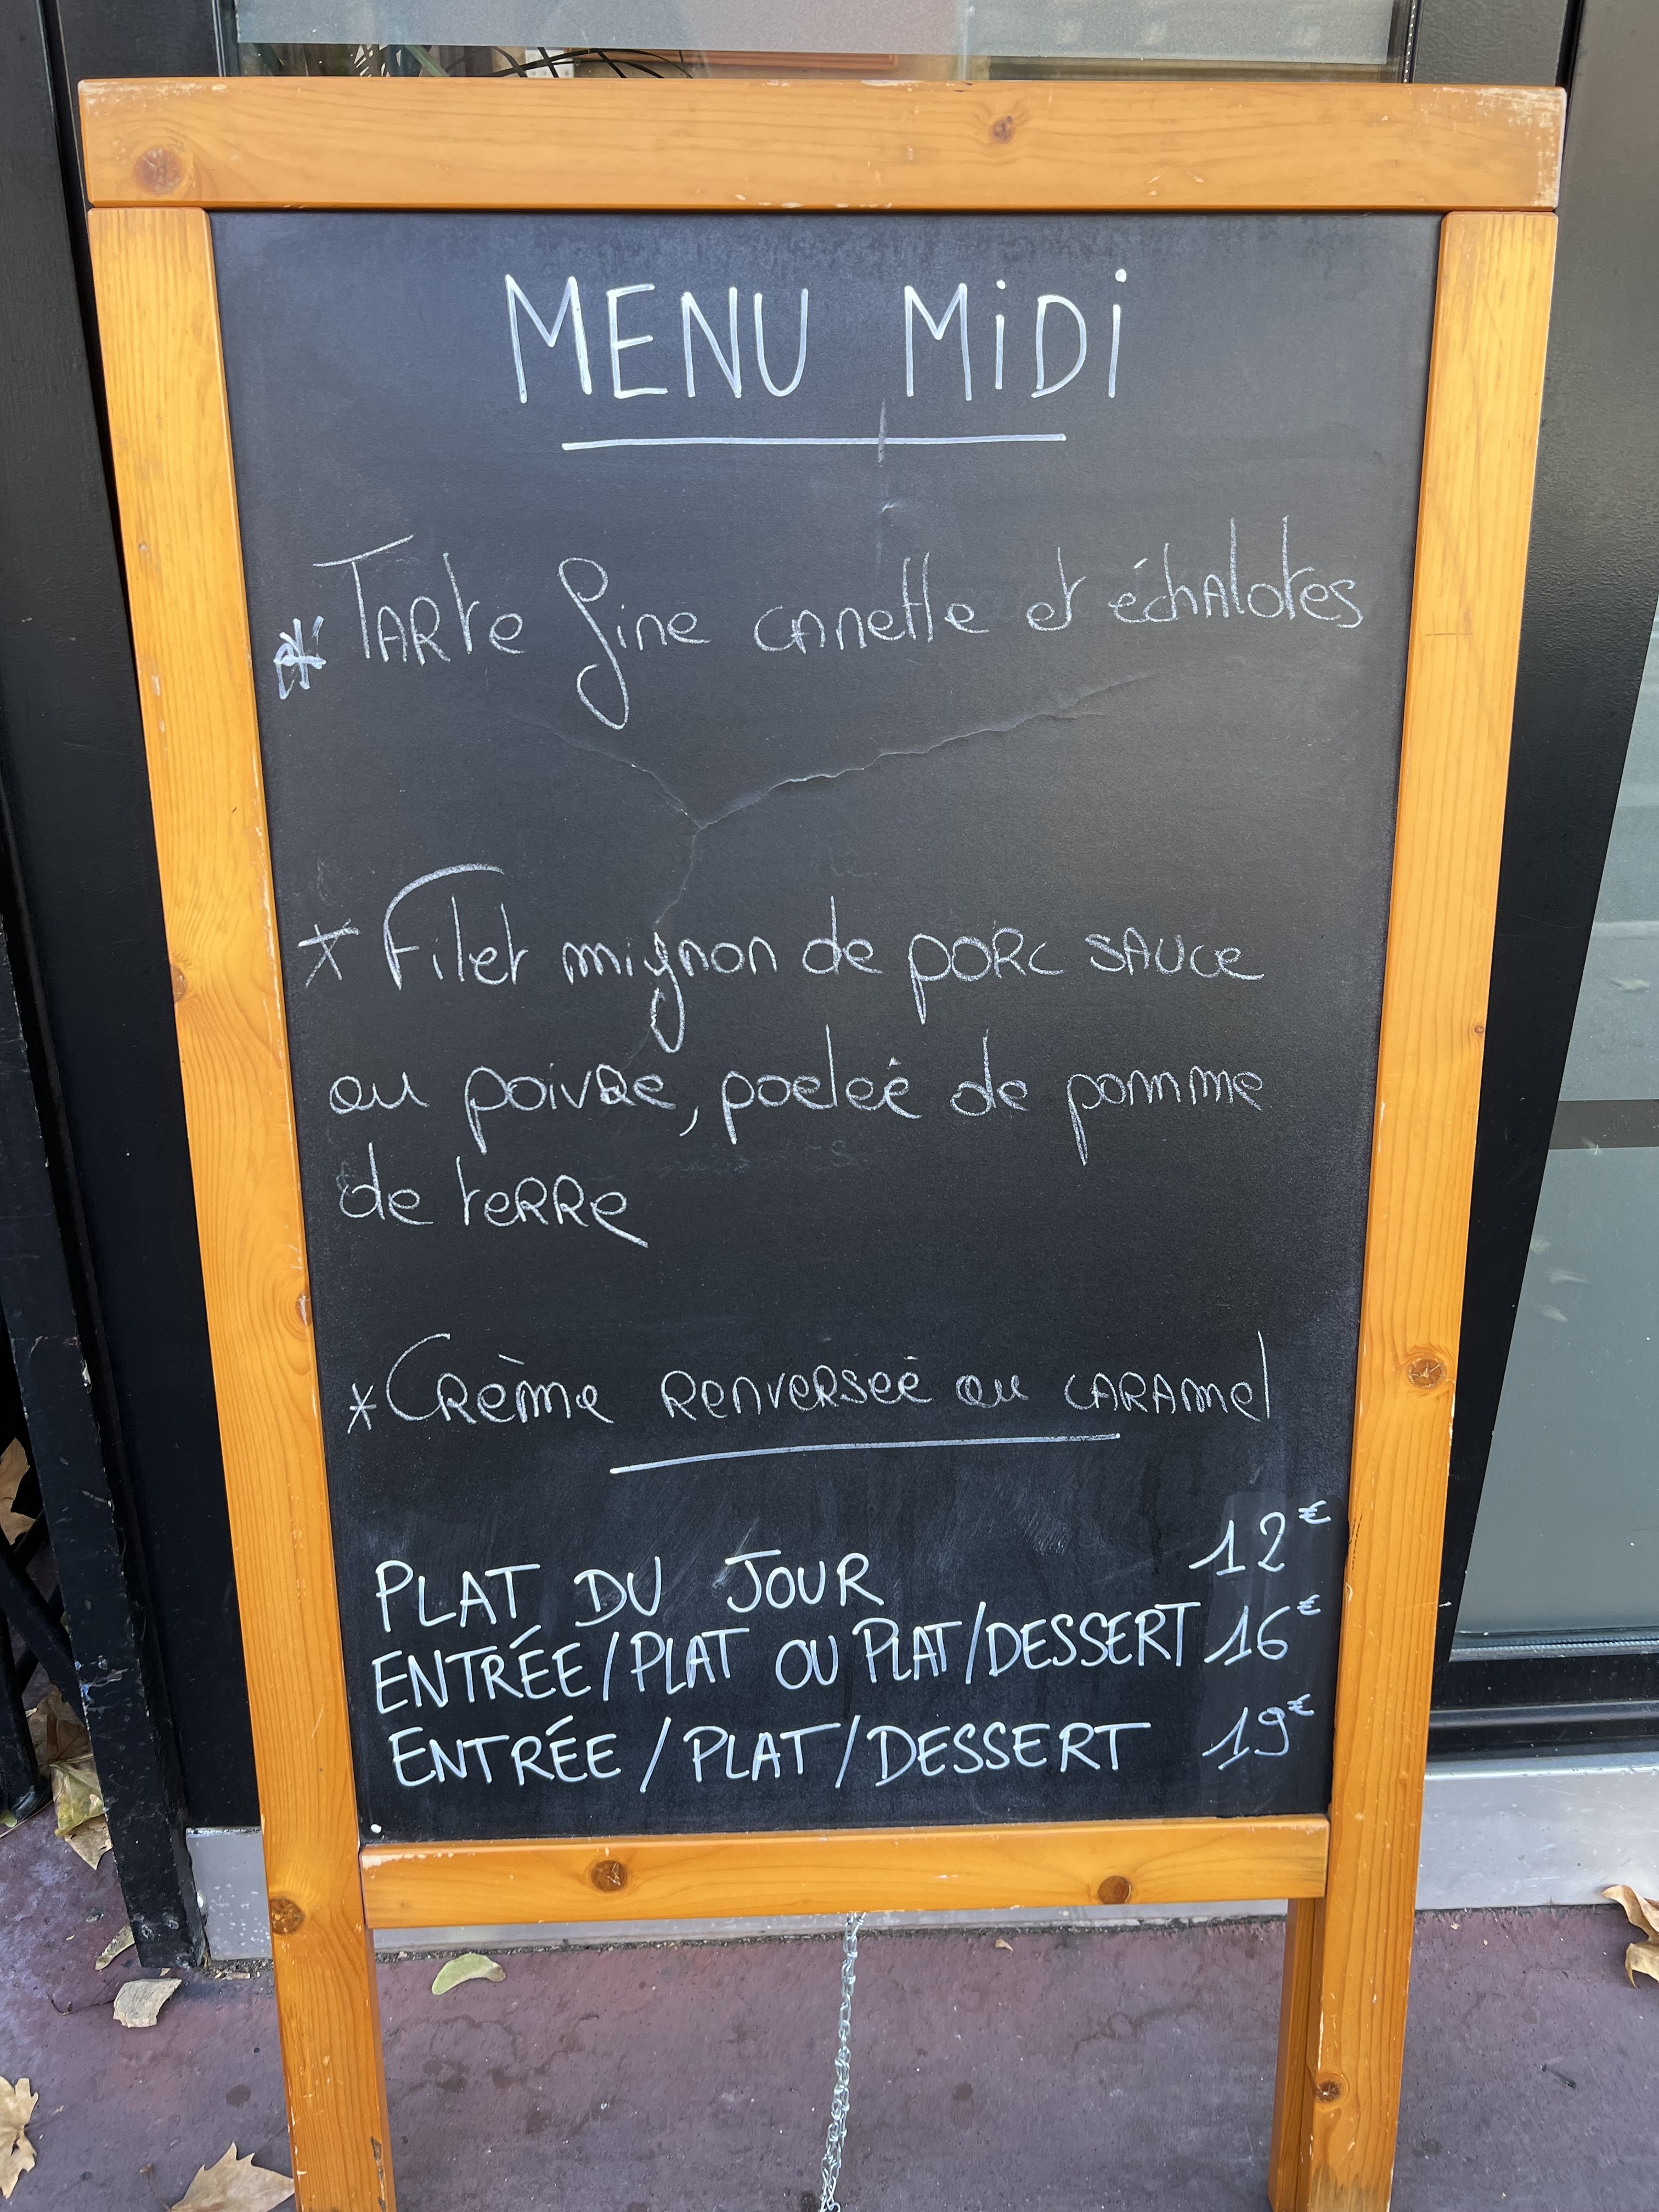 MENU MiDi
* TARte fine cannette et échAlotes
* Filet mignon de PORC SAUCE
au poivRe, poeleé de pomme
de teRRe
* CRème RenveRseé au CARAmel
PLAT DU JOUR 12€
ENTRÉE/PLAT OU PLAT/DESSERT 16€
ENTRÉE/PLAT/DESSERT 19€